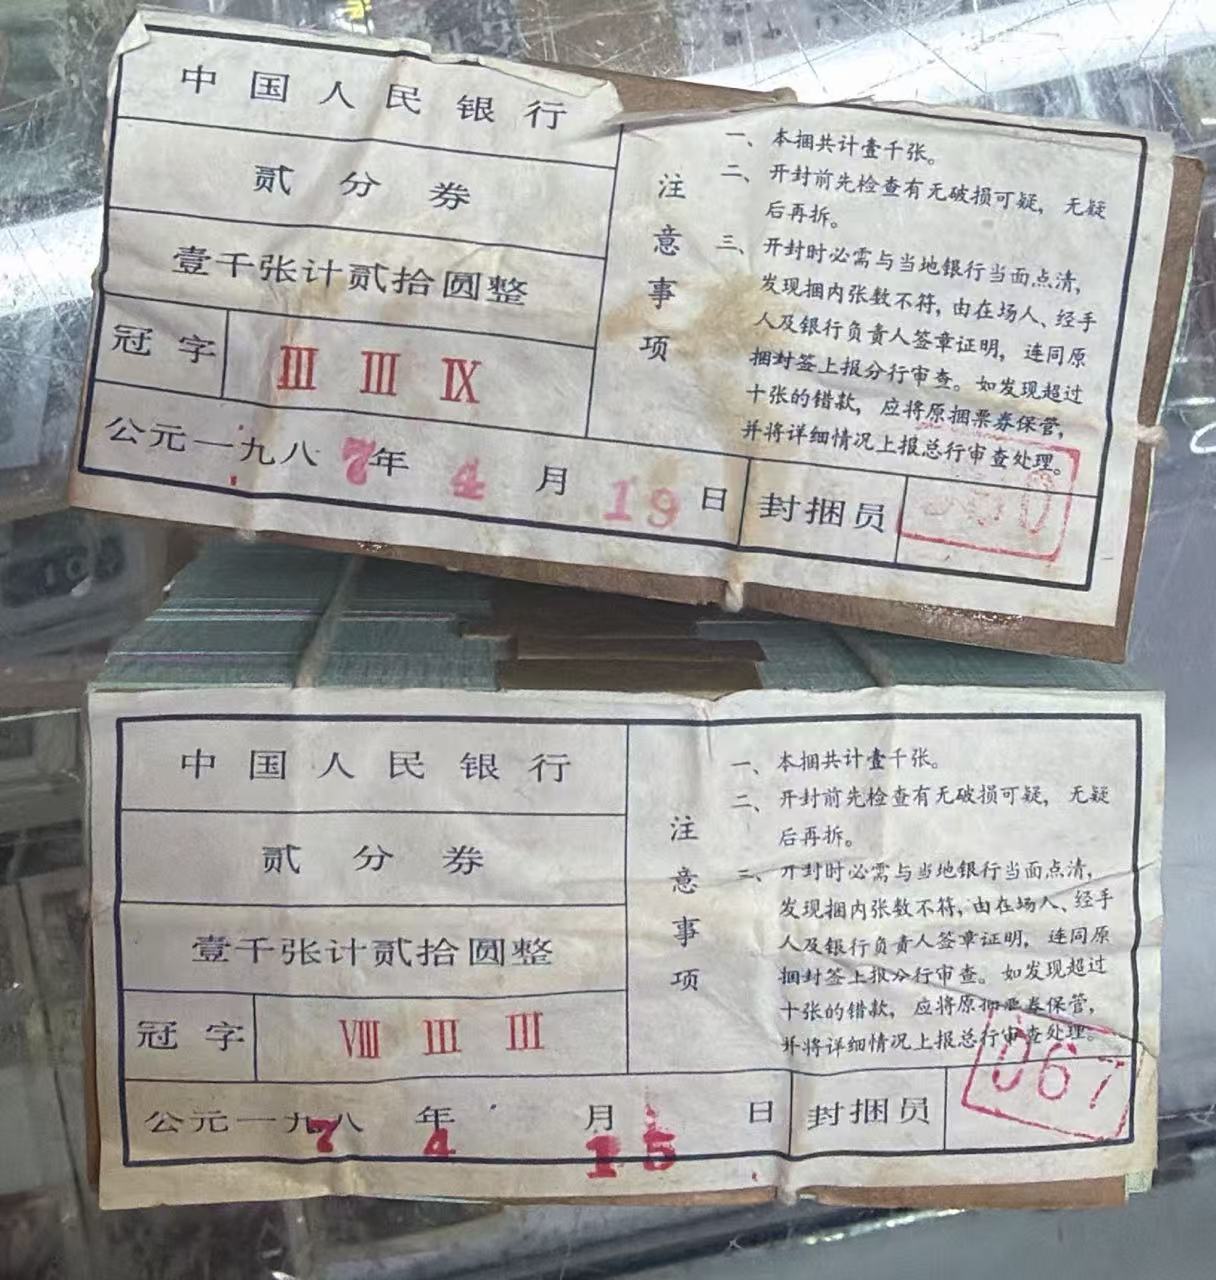 中国人民银行
贰分券
壹千张计贰拾圆整
冠字 Ⅲ Ⅲ Ⅸ
公元一九八7年4月19日
注意事项
一、本捆共计壹千张。
二、开封前先检查有无破损可疑，无疑
后再拆。
三、开封时必需与当地银行当面点清，
发现捆内张数不符，由在场人、经手
人及银行负责人签章证明，连同原
捆封签上报分行审查。如发现超过
十张的错款，应将原捆票券保管，
并将详细情况上报总行审查处理。
封捆员
中国人民银行
贰分券
壹千张计贰拾圆整
冠字 Ⅷ Ⅲ Ⅲ
公元一九八 年 月 日
7 4 15
注意事项
一、本捆共计壹千张。
二、开封前先检查有无破损可疑，无疑
后再拆。
三、开封时必需与当地银行当面点清，
发现捆内张数不符，由在场人、经手
人及银行负责人签章证明，连同原
捆封签上报分行审查。如发现超过
十张的错款，应将原捆票券保管，
并将详细情况上报总行审查处理。
封捆员 067